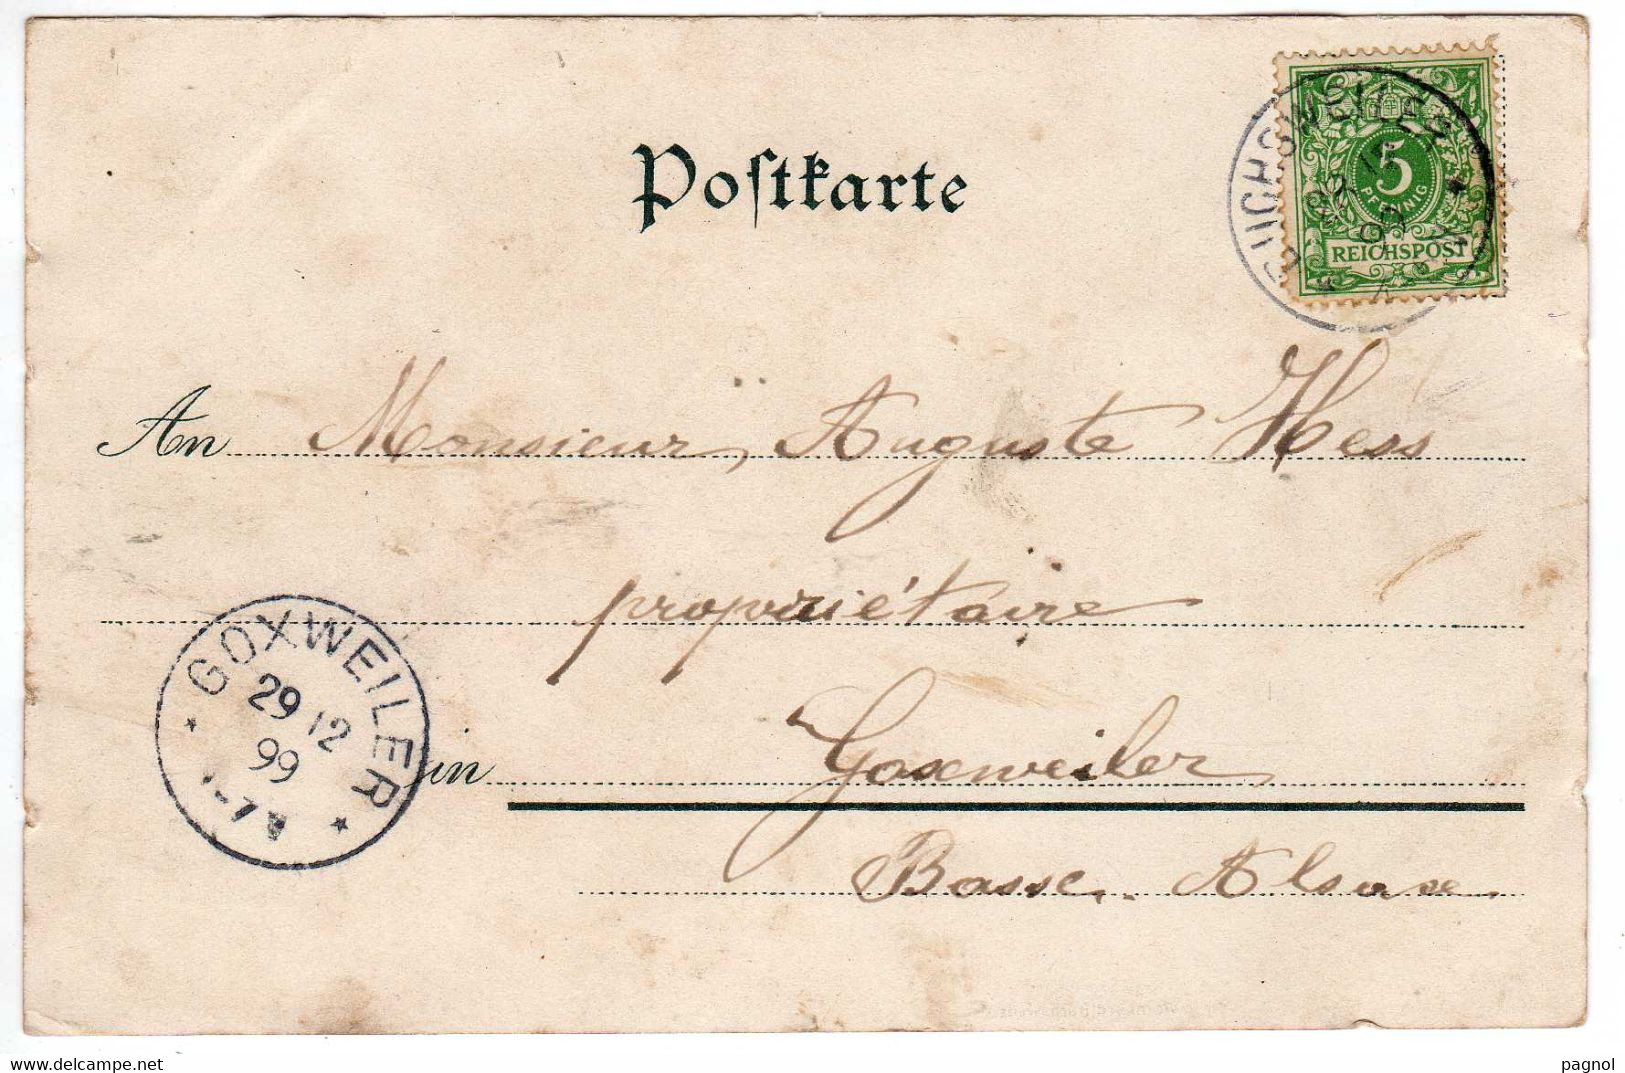 Postkarte
BUCHSWEILER
5
PFENNIG
REICHSPOST
An Monsieur, Auguste Hess
propriétaire
GOXWEILER
29 12
99
in Goxweiler
Basse-Alsace
www.delcampe.net
pagnol